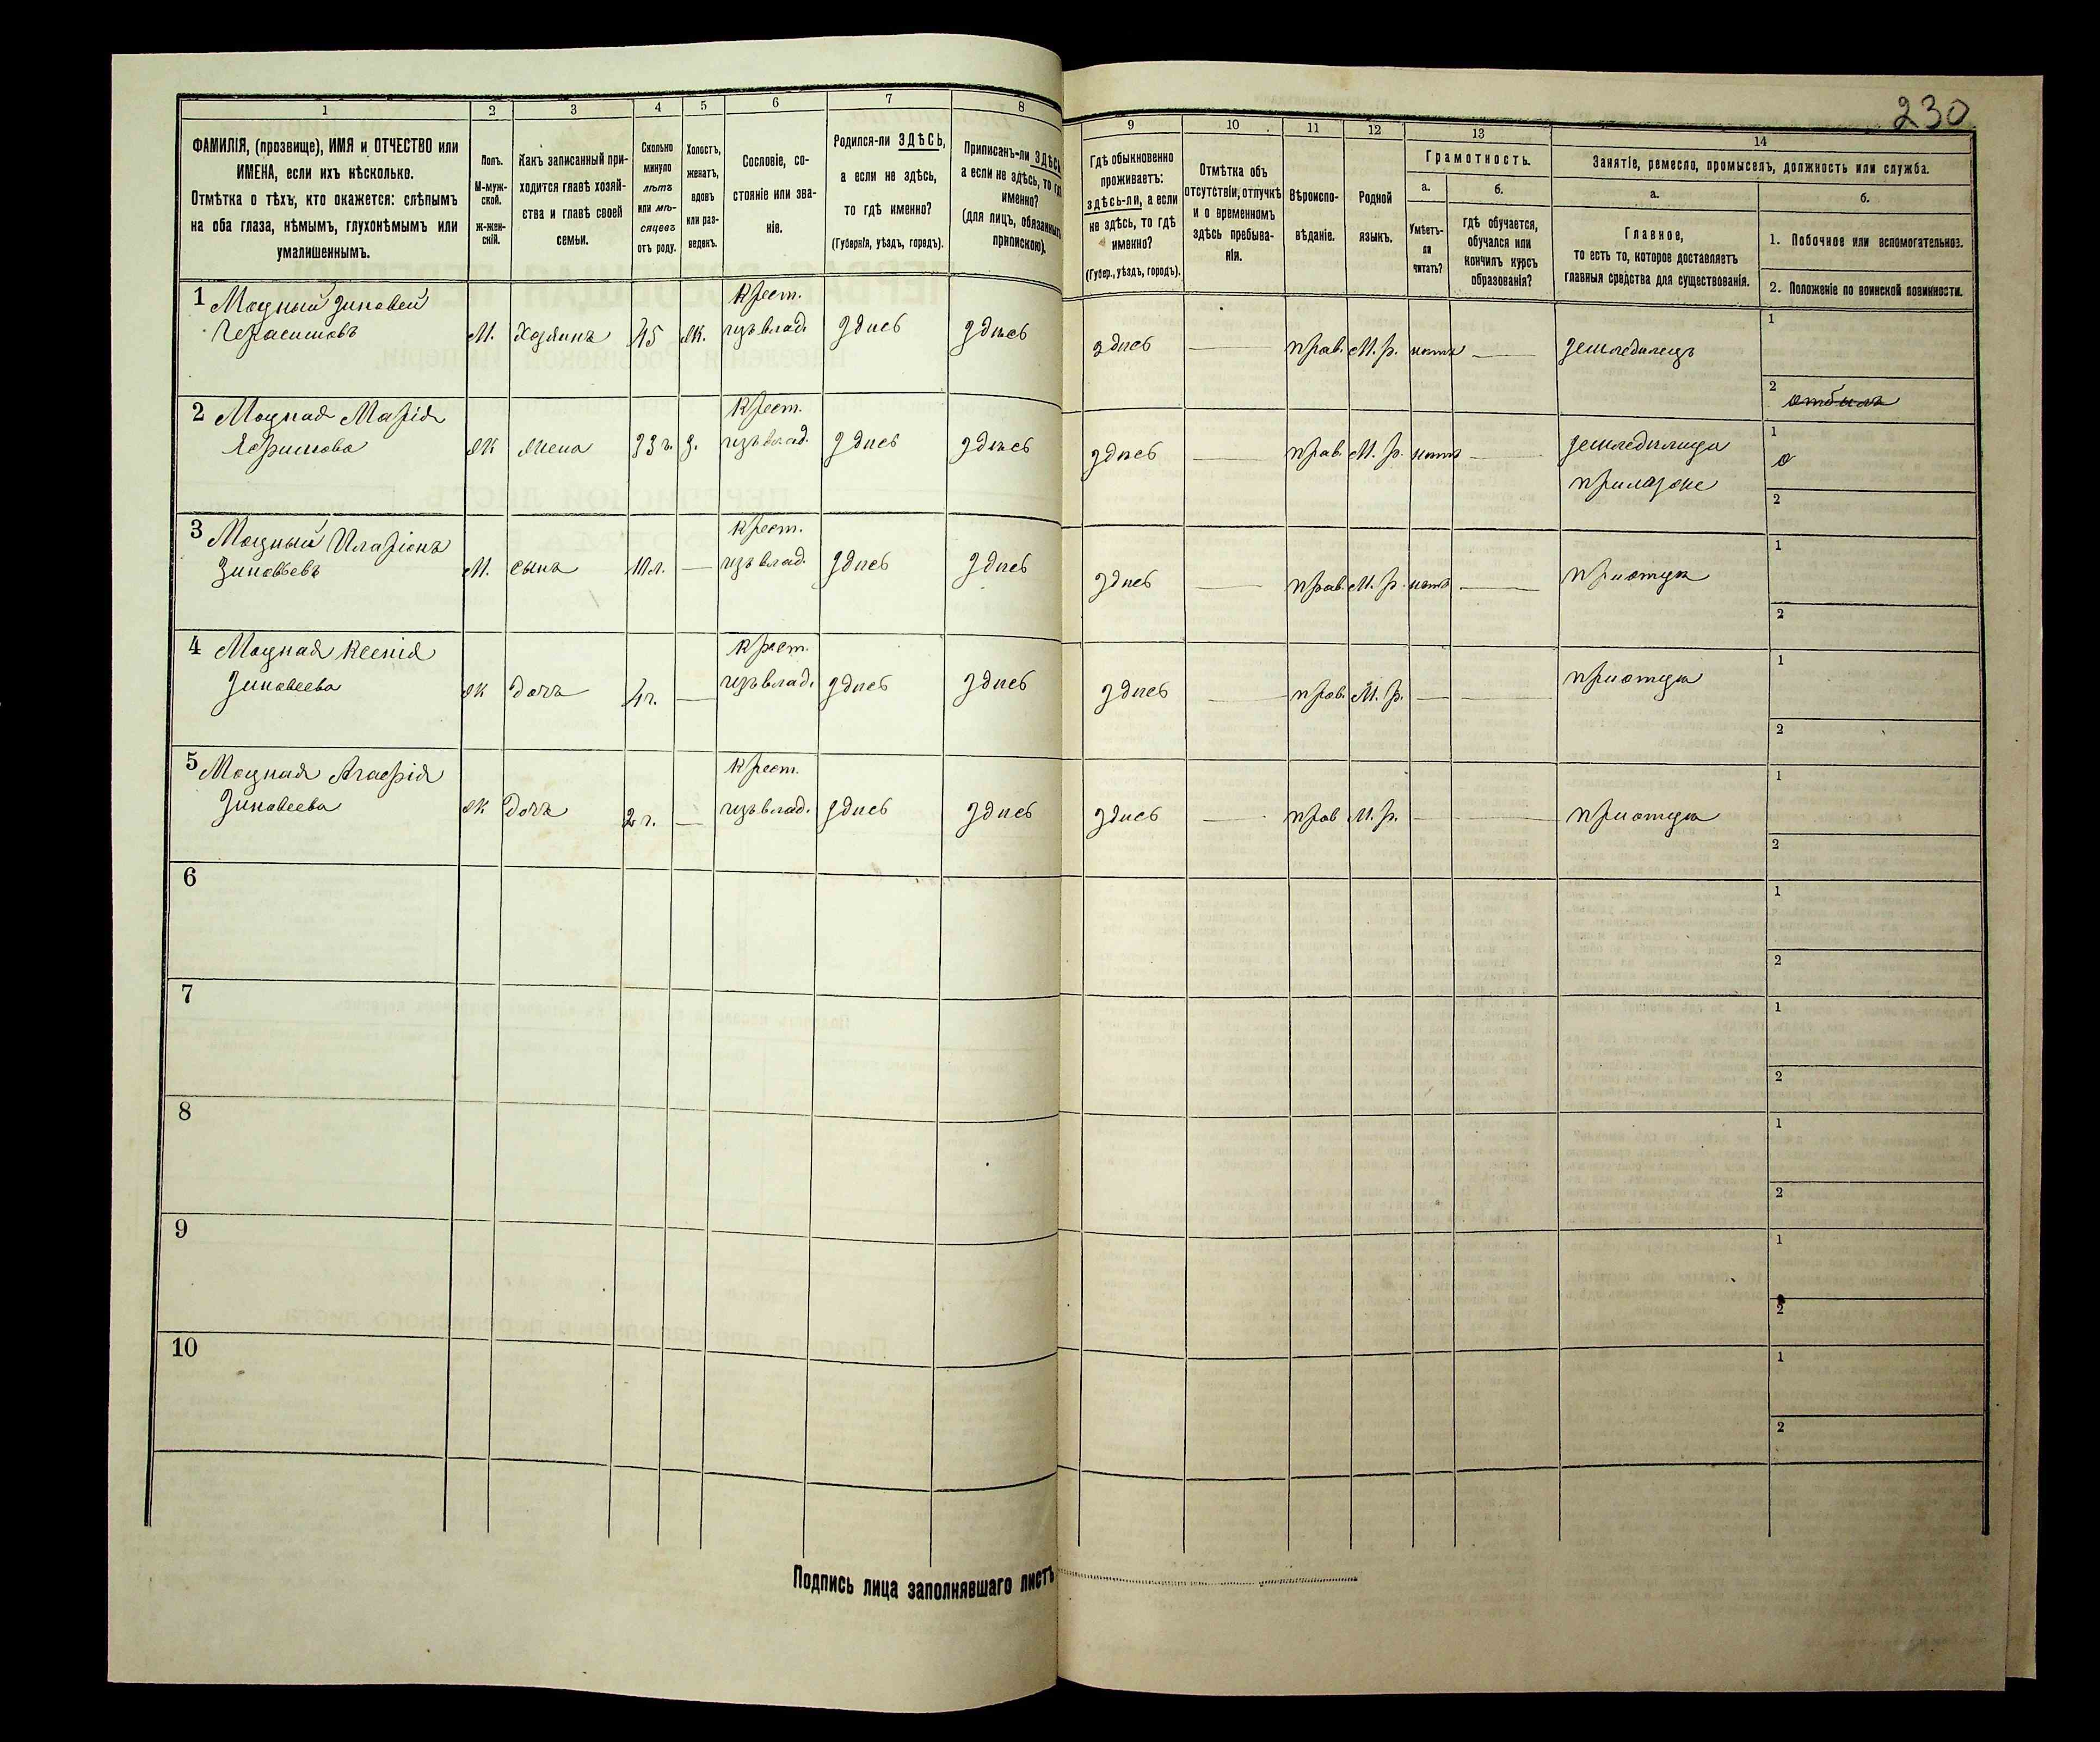 230
1
2
3
4
5
6
7
8
9
10
11
12
13
14
ФАМИЛІЯ, (прозвище), ИМЯ и ОТЧЕСТВО или
ИМЕНА, если ихъ нѣсколько.
Отмѣтка о тѣхъ, кто окажется: слѣпымъ
на оба глаза, нѣмымъ, глухонѣмымъ или
умалишеннымъ.
Полъ.
М-муж-
ской.
ж-жен-
скій.
Какъ записанный при-
ходится главѣ хозяй-
ства и главѣ своей
семьи.
Сколько
минуло
лѣтъ
или мѣ-
сяцевъ
отъ роду.
Холостъ,
женатъ,
вдовъ
или раз-
веденъ.
Сословіе, со-
стояніе или зва-
ніе.
Родился-ли ЗДѢСЬ,
а если не здѣсь,
то гдѣ именно?
(Губернія, уѣздъ, городъ).
Приписанъ-ли ЗДѢСЬ
а если не здѣсь, то гдѣ
именно?
(для лицъ, обязанныхъ
припискою).
Гдѣ обыкновенно
проживаетъ:
здѣсь-ли, а если
не здѣсь, то гдѣ
именно?
(Губер., уѣздъ, городъ).
Отмѣтка объ
отсутствіи, отлучкѣ
и о временномъ
здѣсь пребыва-
ніи.
Вѣроиспо-
вѣданіе.
Родной
языкъ.
Грамотность.
а.
Умѣетъ-
ли
читать?
б.
гдѣ обучается,
обучался или
кончилъ курсъ
образованія?
Занятіе, ремесло, промыселъ, должность или служба.
а.
Главное,
то есть то, которое доставляетъ
главныя средства для существованія.
б.
1. Побочное или вспомогательное.
2. Положеніе по воинской повинности.
1 Моцный Зиновей
Герасимовъ
М. Хозяинъ 45 Ж. Крест.
изъ влад. здѣсь здѣсь здѣсь — прав. М. р. нѣтъ — земледѣлецъ
1
2 отбылъ
2 Моцная Марія
Ефимова
Ж жена 33 г. З. Крест.
изъ влад. здѣсь здѣсь здѣсь — прав. М. р. нѣтъ — земледѣлица
при мужѣ
1
2
3 Моцный Иларіонъ
Зиновьевъ
М. сынъ 10 л. — Крест.
изъ влад. здѣсь здѣсь здѣсь — прав. М. р. нѣтъ — при отцѣ
1
2
4 Моцная Ксенія
Зиновеева
Ж дочь 4 г. — Крест.
изъ влад. здѣсь здѣсь здѣсь — прав. М. р. — — при отцѣ
1
2
5 Моцная Агафія
Зиновеева
Ж дочь 2 г. — Крест.
изъ влад. здѣсь здѣсь здѣсь — прав М. р. — — при отцѣ
1
2
6
1
2
7
1
2
8
1
2
9
1
2
10
1
2
Подпись лица заполнявшаго листъ